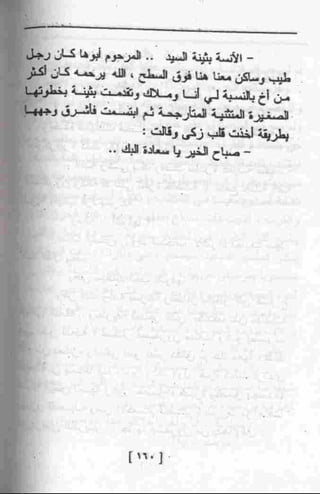 - الآنسة بثينة السيد .. المرحوم أبوها كان رجل
طيب وساكن معنا هنا فوق السطح ، الله يرحمه كان أكثر
من أخ بالنسبة لي أنا وملاك وتقدمت بثينة بخطوتها
الصغيرة المتثنية المتأرجحة ثم ابتسمت فأشرق وجهها
بطريقة أخذت قلب زكى وقالت :
- صباح الخير يا سعادة البك ..
[ ١٦٠ ]